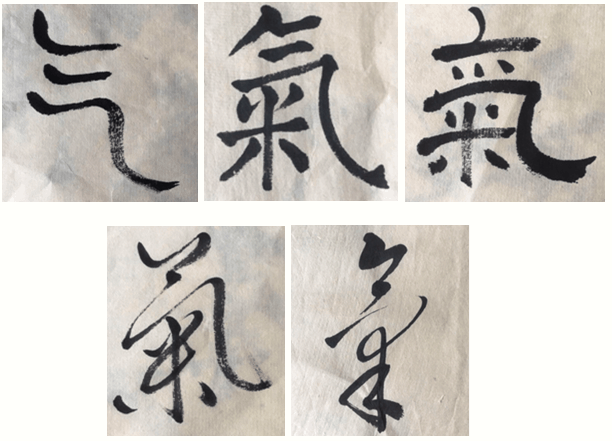 气 氣 氣
氣 氣